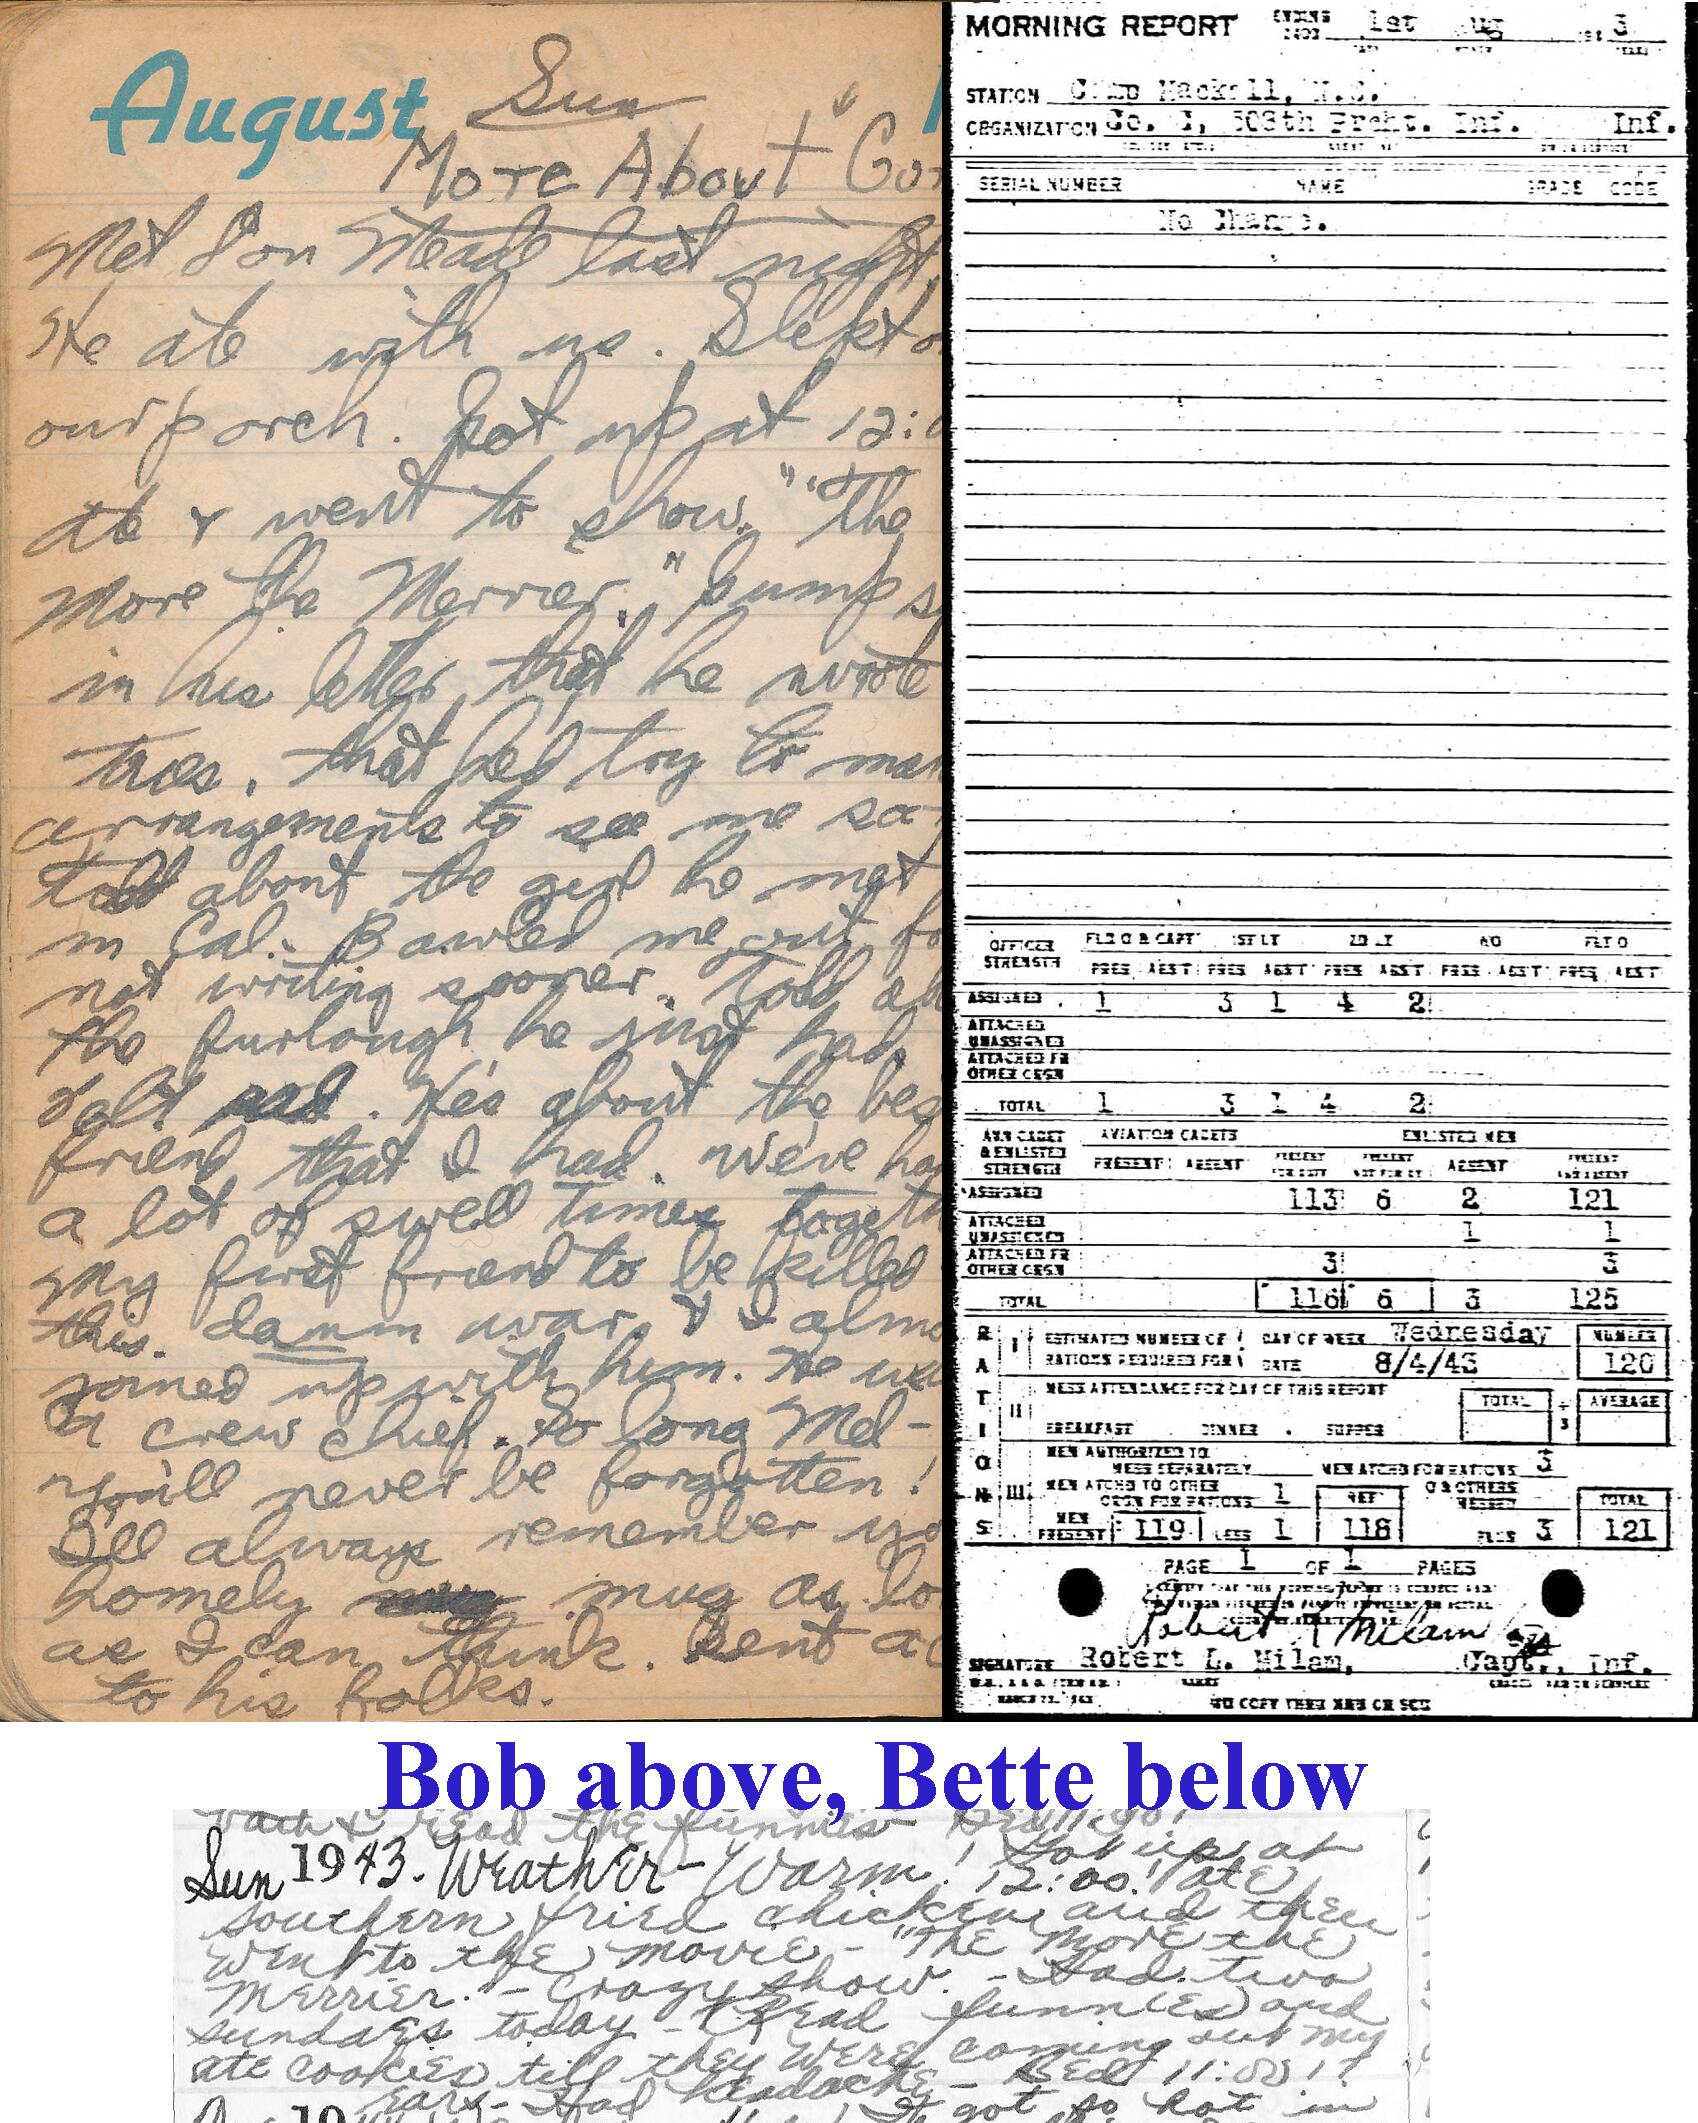 August Sun
More About "Gor
Met Don Meade last night,
He ate with us. Slept o
our porch. Got up at 12:0
ate & went to show. "The
More the Merrier." Gump s
in his letter, that he wrote
tues. that he'd try to mak
arrangements to see me so
told about the girl he met
in Cal. Bawled me out fo
not writing sooner. Told ab
the furlough he just had.
Felt . He's about the bes
friend that I had. We've ha
a lot of swell times togeth
My first friend to be killed
this. damn war, & I almo
joined up with him. He wa
a crew chief. So long Mel-
you'll never be forgotten!
I'll always remember yo
homely mug as lo
as I can think. Sent a c
to his folks.
MORNING REPORT ENDING 2400 1st Aug 3
STATION Camp Mackall, N.C.
ORGANIZATION Co. I, 508th Prcht. Inf. Inf.
SERIAL NUMBER NAME GRADE CODE
No Change.
OFFICER STRENGTH FLD O & CAPT 1ST LT 2D LT WO FLT O
PRES ABST PRES ABST PRES ABST PRES ABST PRES ABST
ASSIGNED 1 3 1 4 2
ATTACHED UNASSIGNED
ATTACHED FR OTHER ORGN
TOTAL 1 3 1 4 2
AVN CADET & ENLISTED STRENGTH AVIATION CADETS ENLISTED MEN
PRESENT ABSENT PRESENT FOR DUTY PRESENT NOT FOR DY ABSENT PRESENT AND ABSENT
ASSIGNED 113 6 2 121
ATTACHED UNASSIGNED 1 1
ATTACHED FR OTHER ORGN 3 3
TOTAL 116 6 3 125
RATIONS
I ESTIMATED NUMBER OF RATIONS REQUIRED FOR DAY OF WEEK Wednesday DATE 8/4/43 NUMBER 120
II MESS ATTENDANCE FOR DAY OF THIS REPORT TOTAL ÷ 3 AVERAGE
BREAKFAST DINNER SUPPER
III MEN AUTHORIZED TO MESS SEPARATELY MEN ATCHD FOR RATIONS & OTHERS MESSED 3
MEN ATCHD TO OTHER ORGN FOR RATIONS 1
MEN PRESENT 119 LESS 1 NET 118 PLUS 3 TOTAL 121
PAGE 1 OF 1 PAGES
Robert L Milam
SIGNATURE Robert L. Milam, Capt., Inf.
Bob above, Bette below
bath & read the funnies- Bed 11:30!
Sun 1943. Weather- Warm! Got up at
12:00! Ate
southern fried chicken and then
went to the movie - "The More the
Merrier." - Crazy show. - Had two
sundaes today - Read funnies and
ate cookies till they were coming out my
ears- Had headache - Bed 11:00!
got so hot in